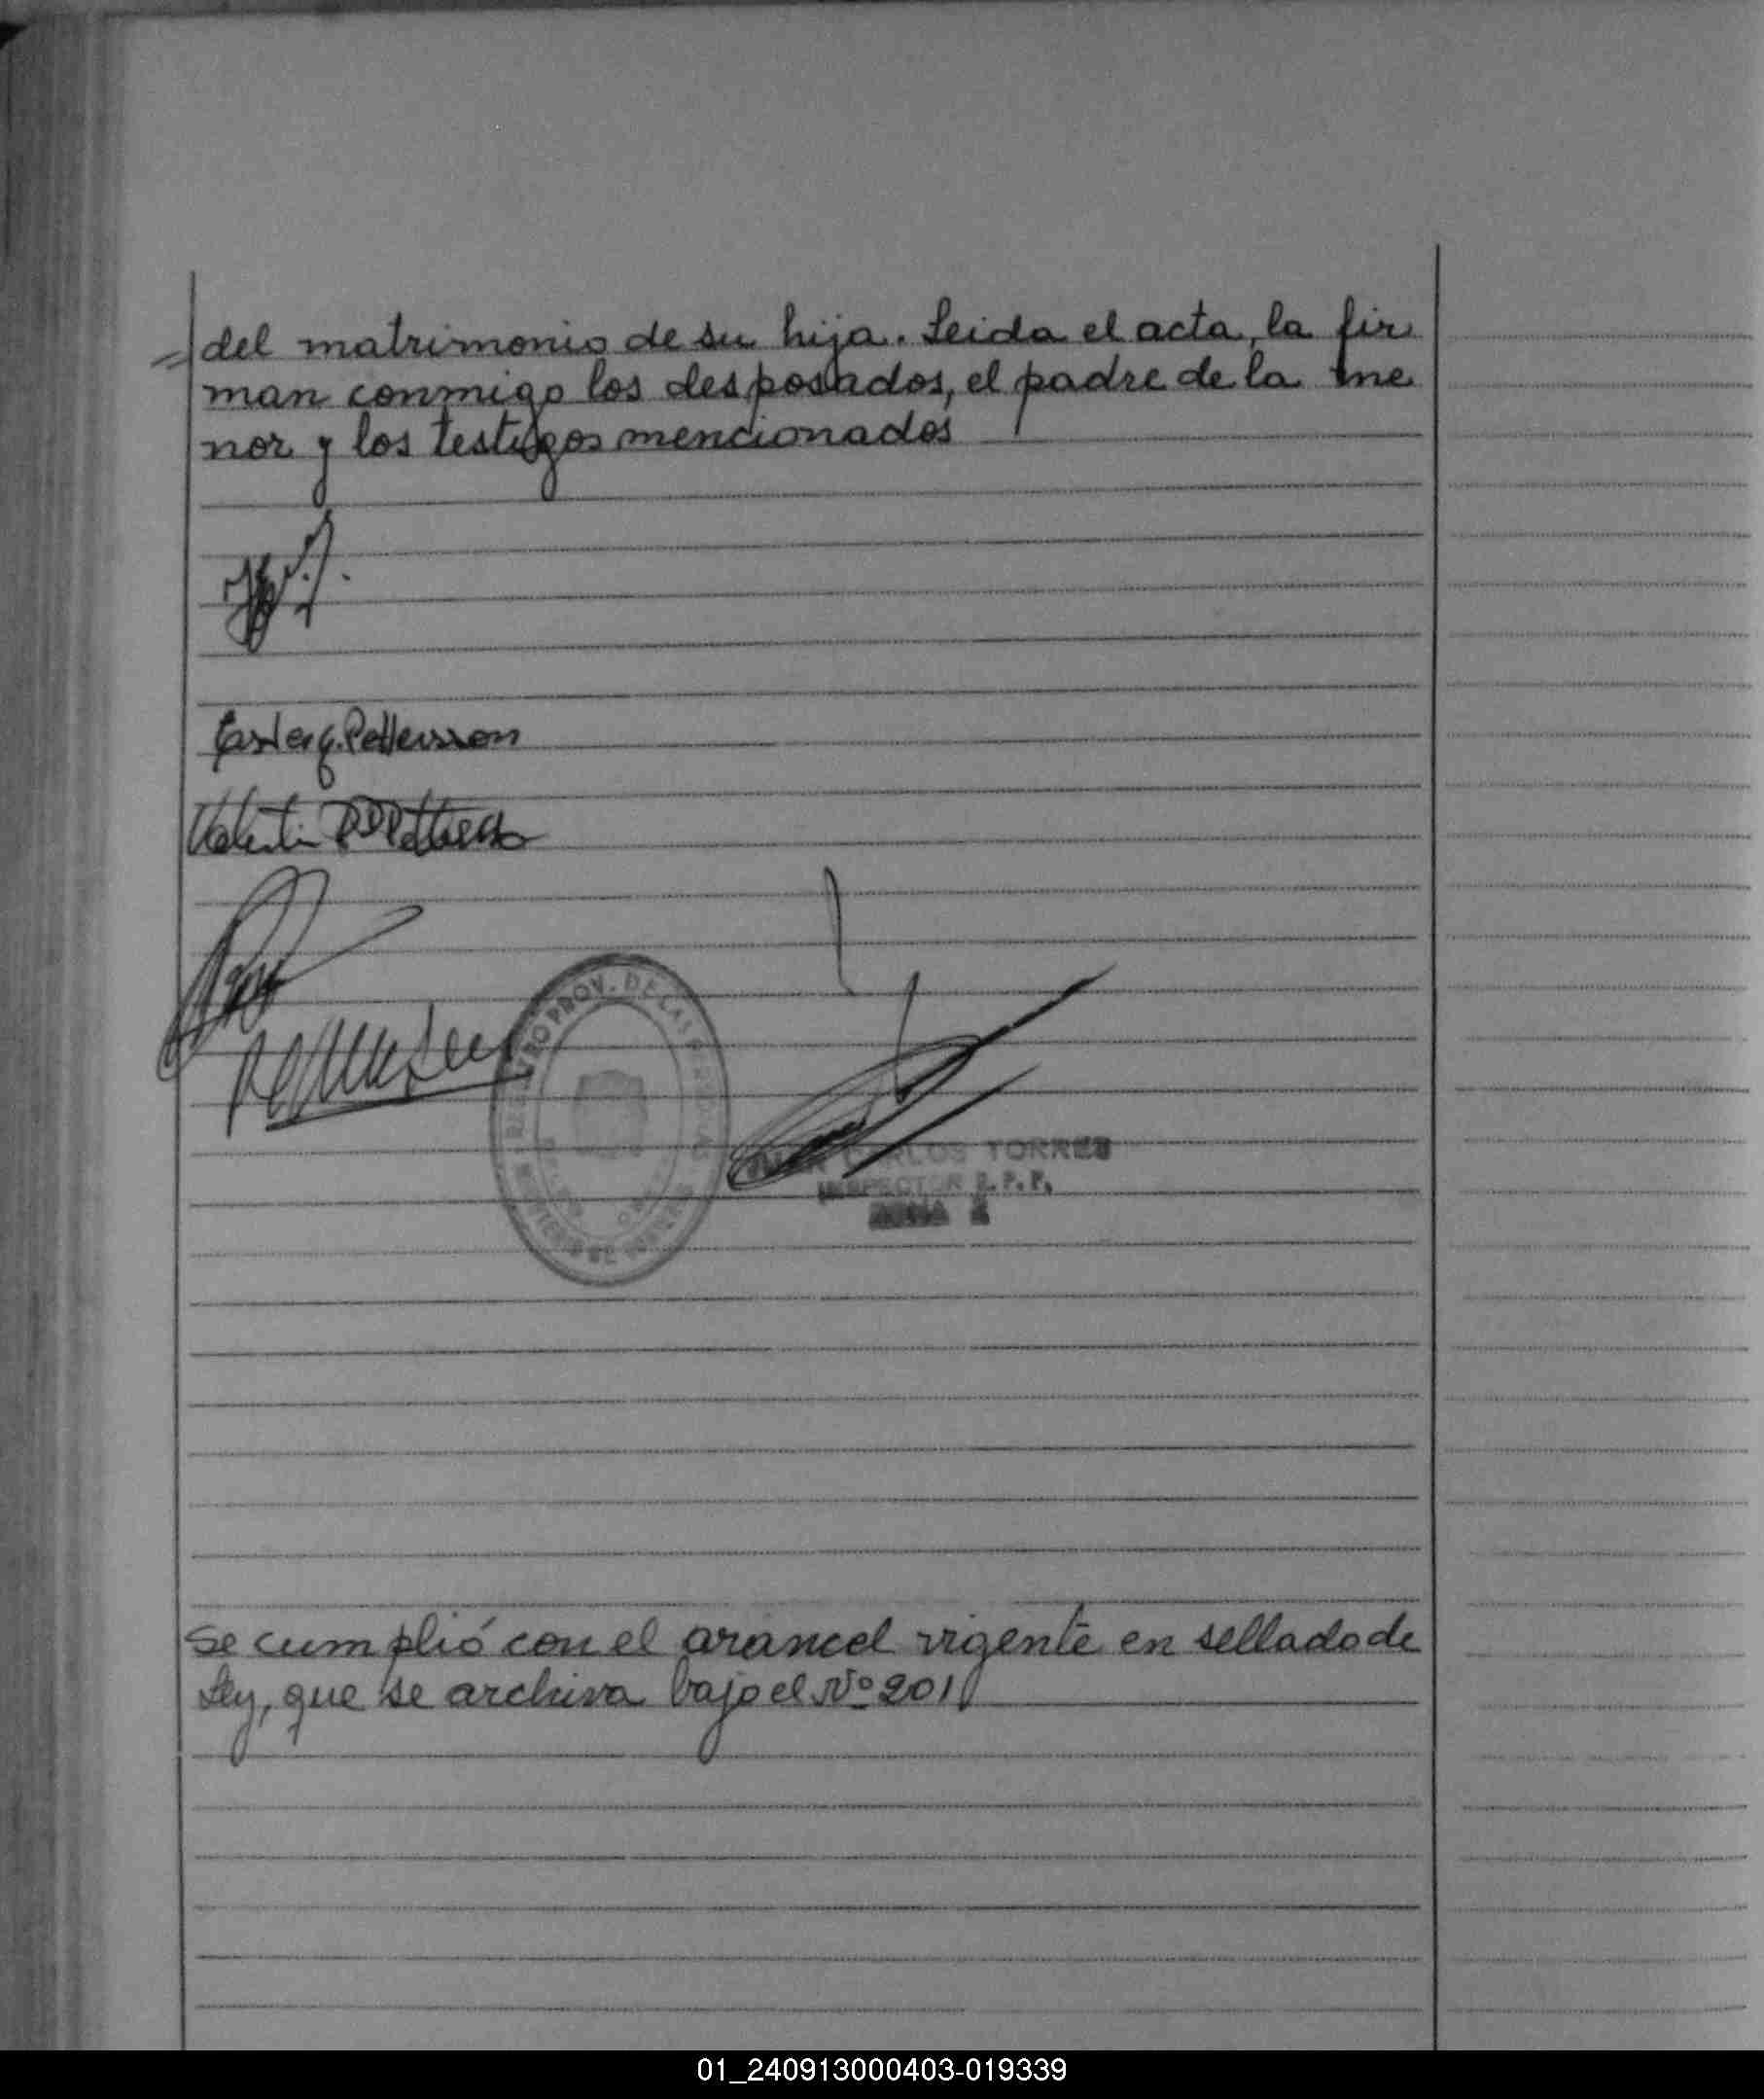 = del matrimonio de su hija. Leida el acta, la fir
man conmigo los desposados, el padre de la me
nor y los testigos mencionados
Pettersson
Valentin
REGISTRO PROV. DE LAS PERSONAS
JUAN CARLOS TORRES
INSPECTOR R.P.P.
ZONA X
Se cumplió con el arancel vigente en sellado de
Ley, que se archiva bajo el Nº 201
01_240913000403-019339